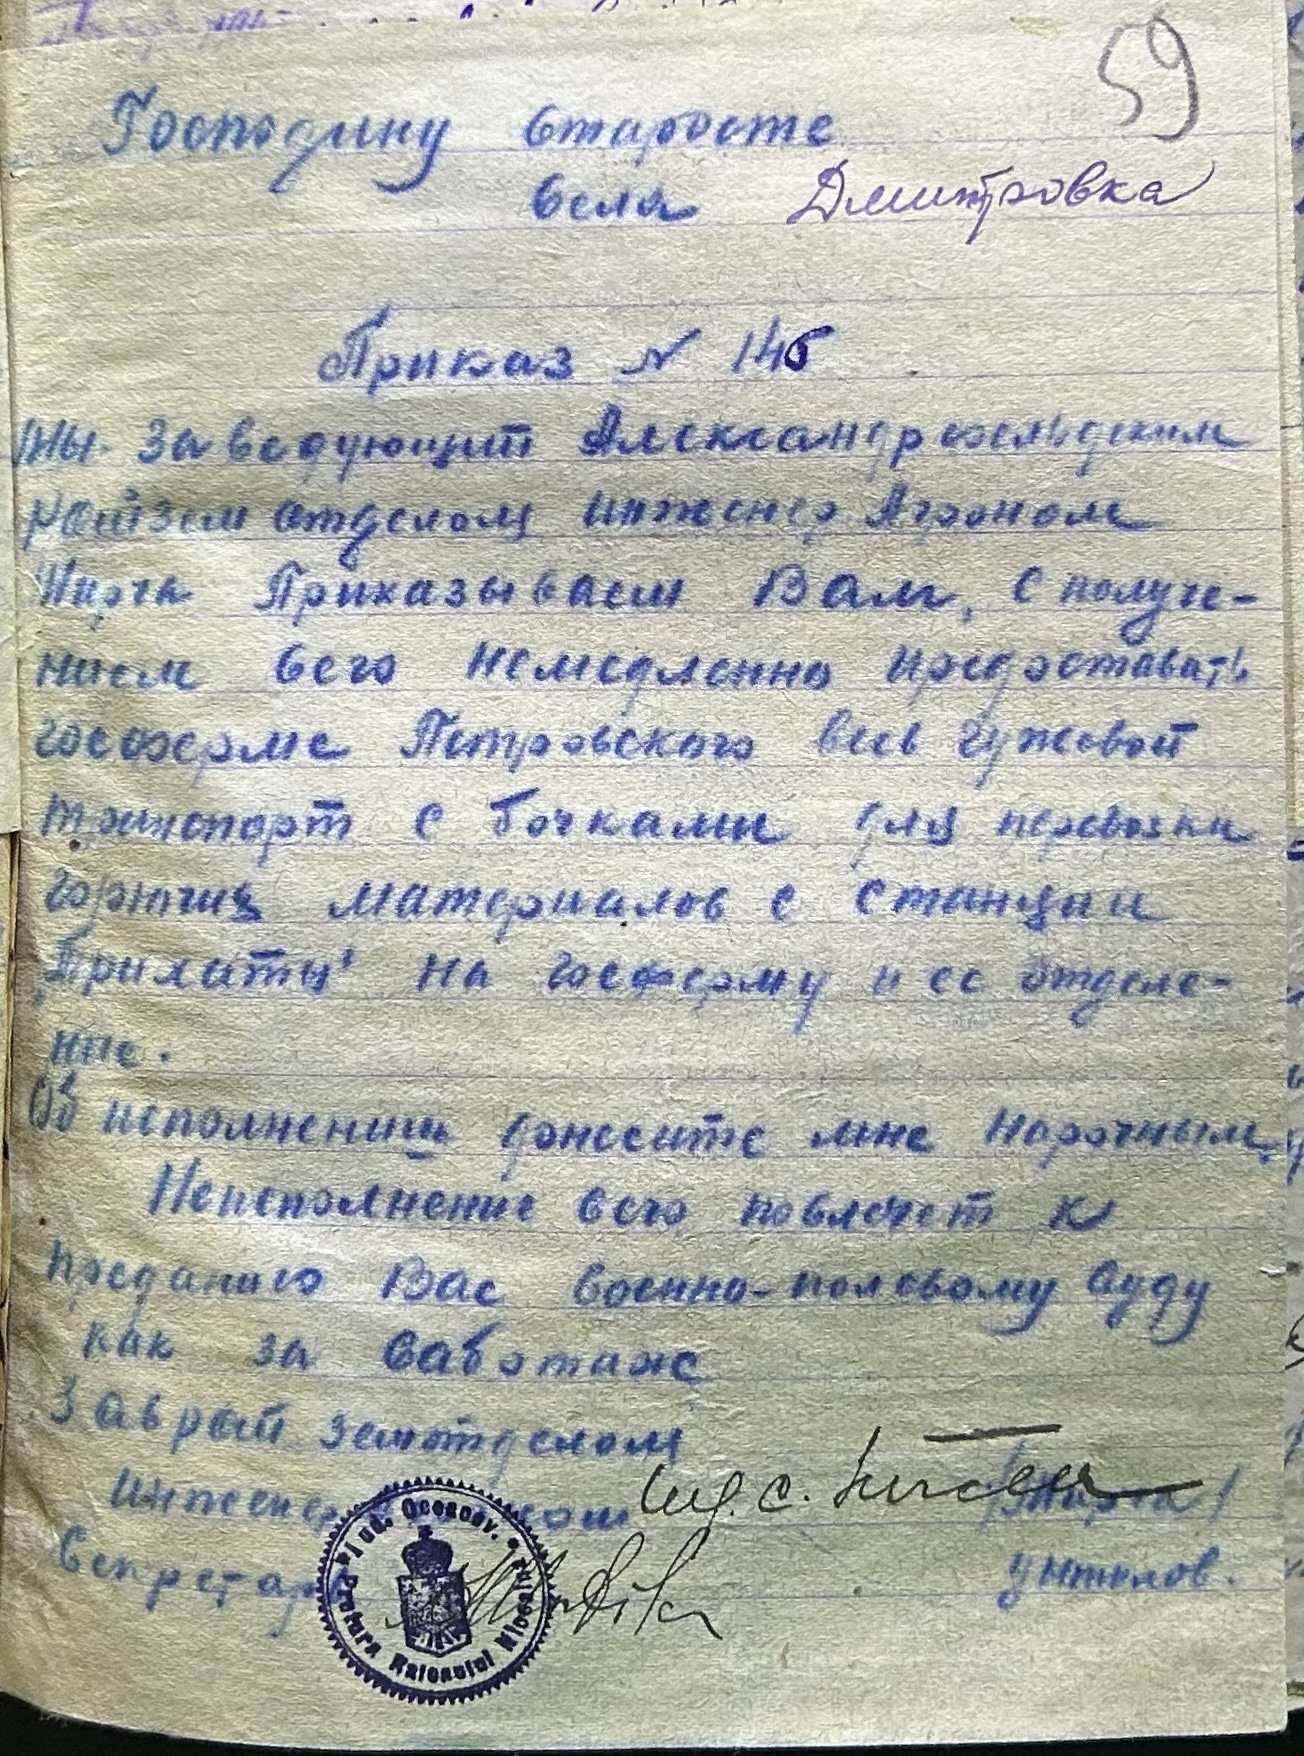 59
Господину Старосте
Села Дмитровка
Приказ № 146
Мы Заведующий Александрсфельдским
Райземотделом инженер Агроном
Кирча Приказываем Вам, С получе-
нием сего немедленно предоставить
госферме Петровского весь гужевой
транспорт с бочками для перевозки
горючих материалов с станции
"Трихаты" на госферму и ее отделе-
ние.
Об исполнении доносите мне нарочным.
Неисполнение сего повлечет к
преданию Вас военно-полевому Суду
как за Саботаж
Заврайземотделом
Инженер Агроном Ing. C. /Кирча/
Секретарь
Jud. Oceacov.
Pretura Raionului